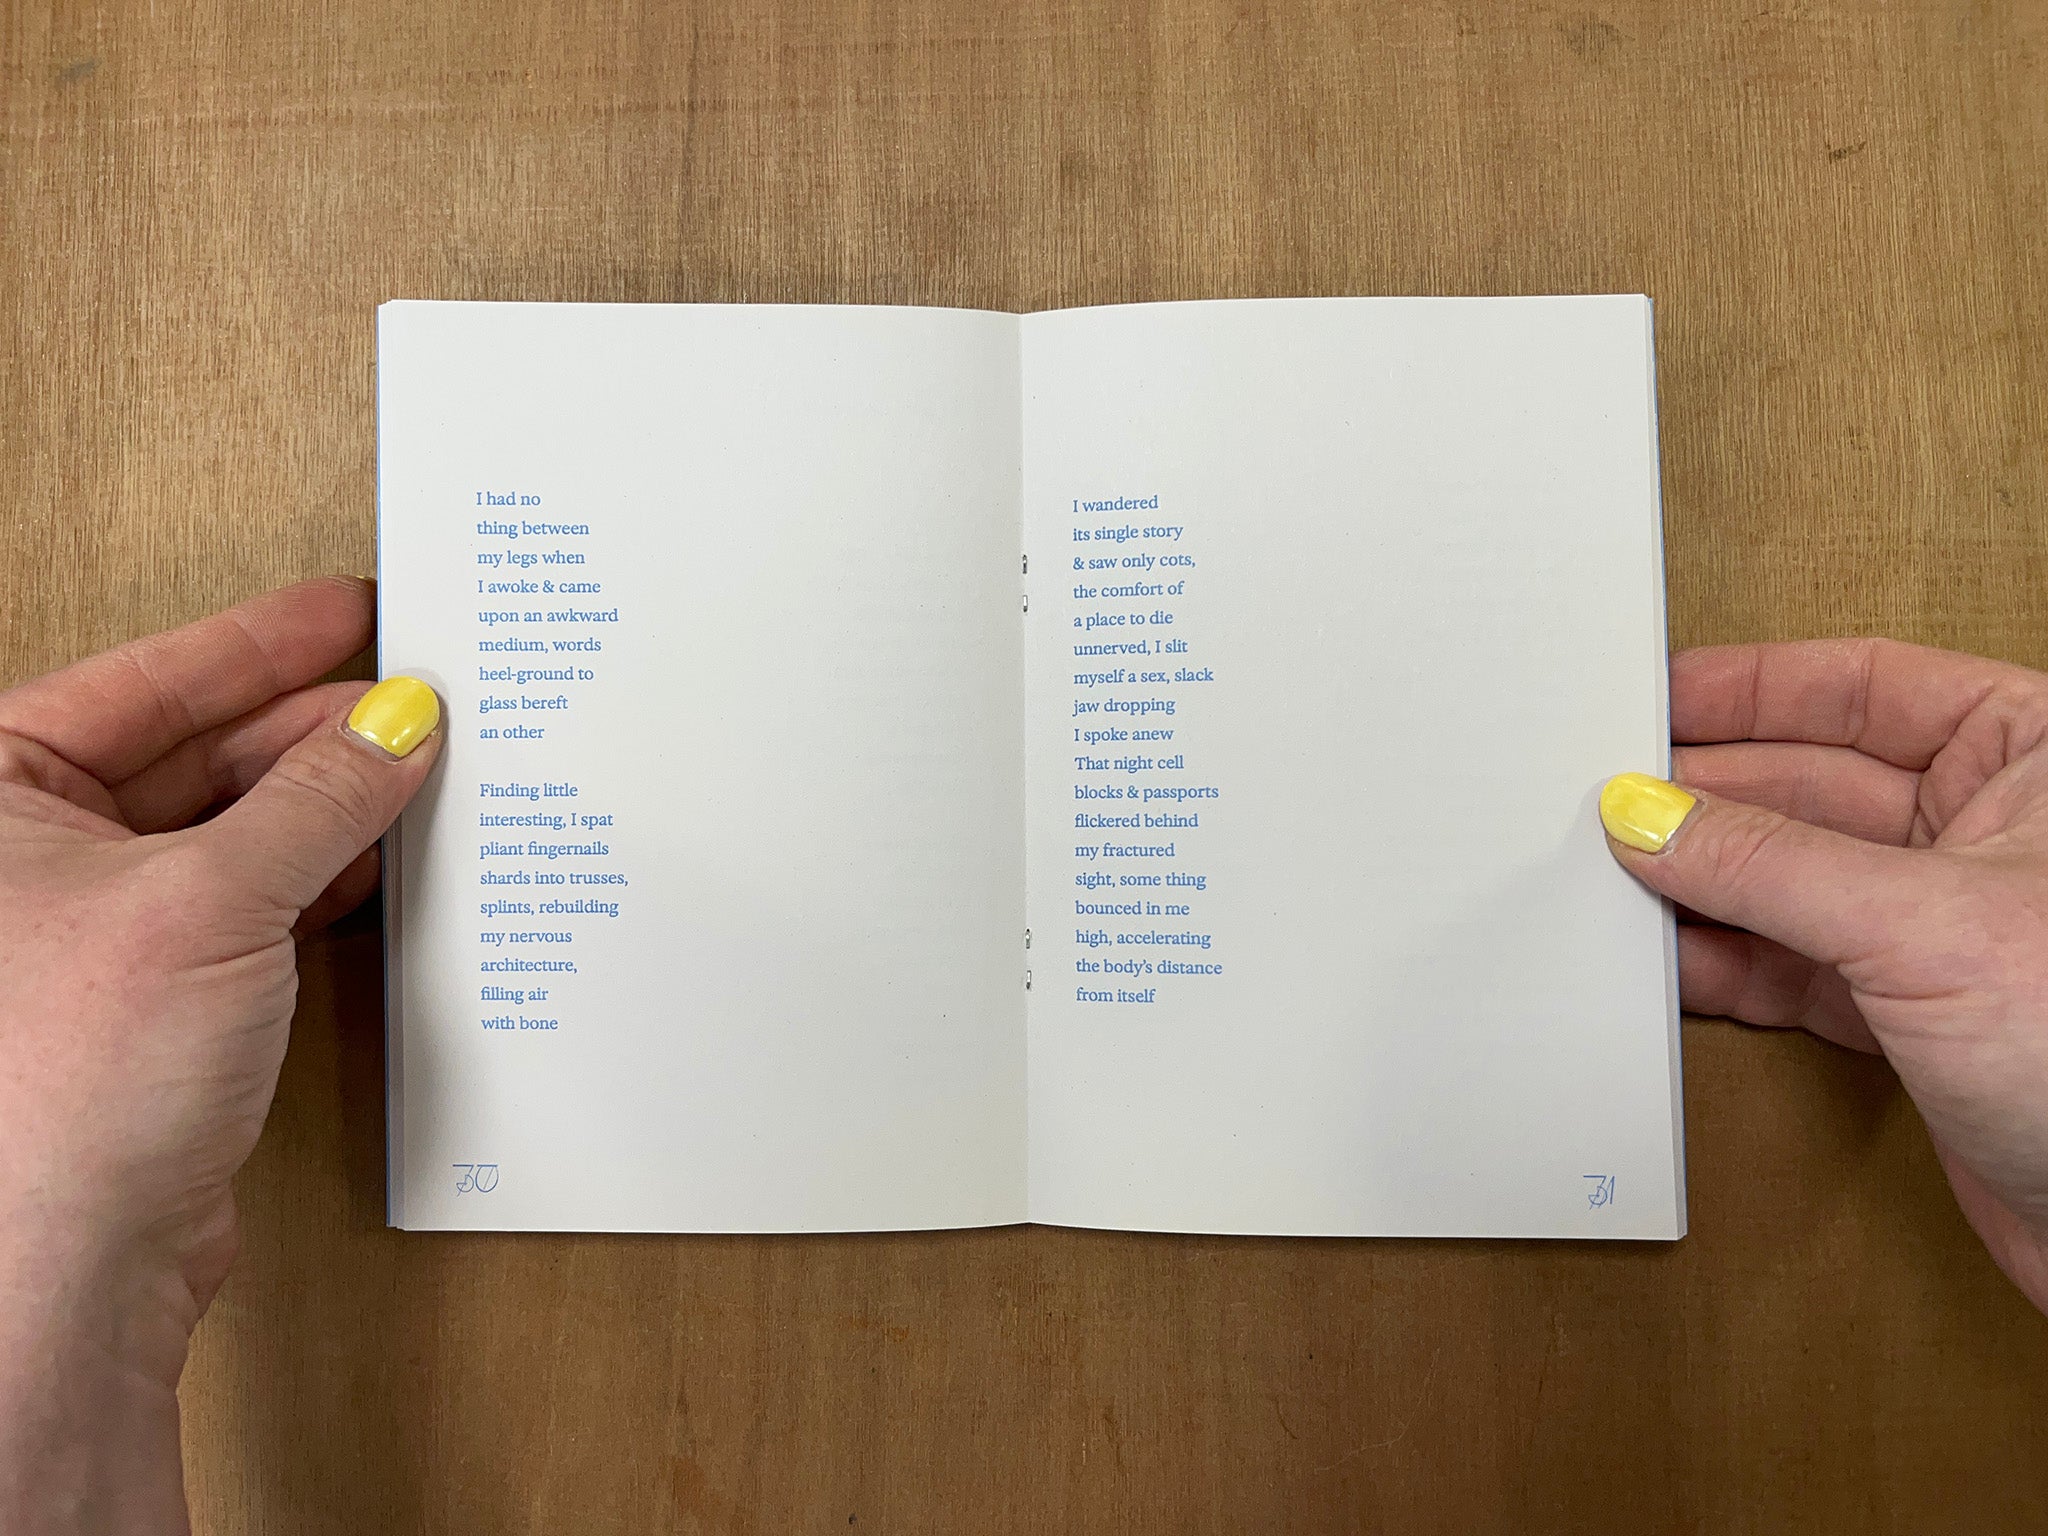 I had no
thing between
my legs when
I awoke & came
upon an awkward
medium, words
heel-ground to
glass bereft
an other
Finding little
interesting, I spat
pliant fingernails
shards into trusses,
splints, rebuilding
my nervous
architecture,
filling air
with bone
30
I wandered
its single story
& saw only cots,
the comfort of
a place to die
unnerved, I slit
myself a sex, slack
jaw dropping
I spoke anew
That night cell
blocks & passports
flickered behind
my fractured
sight, some thing
bounced in me
high, accelerating
the body’s distance
from itself
31